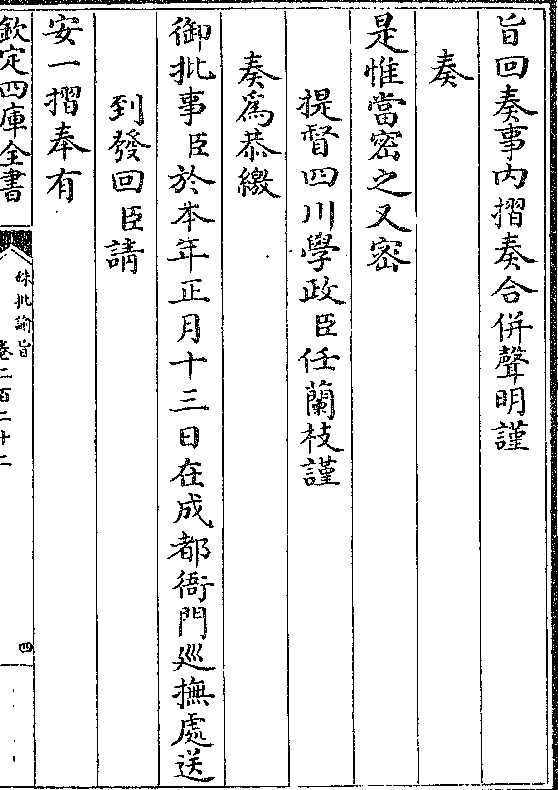 旨回奏事内摺奏合併聲明謹
奏
是惟當密之又密
提督四川學政臣任蘭枝謹
奏爲恭繳
御批事臣於本年正月十三日在成都衙門廵撫處送
到發回臣請
安一摺奉有
欽定四庫全書
硃批諭旨
卷二百二十二
四